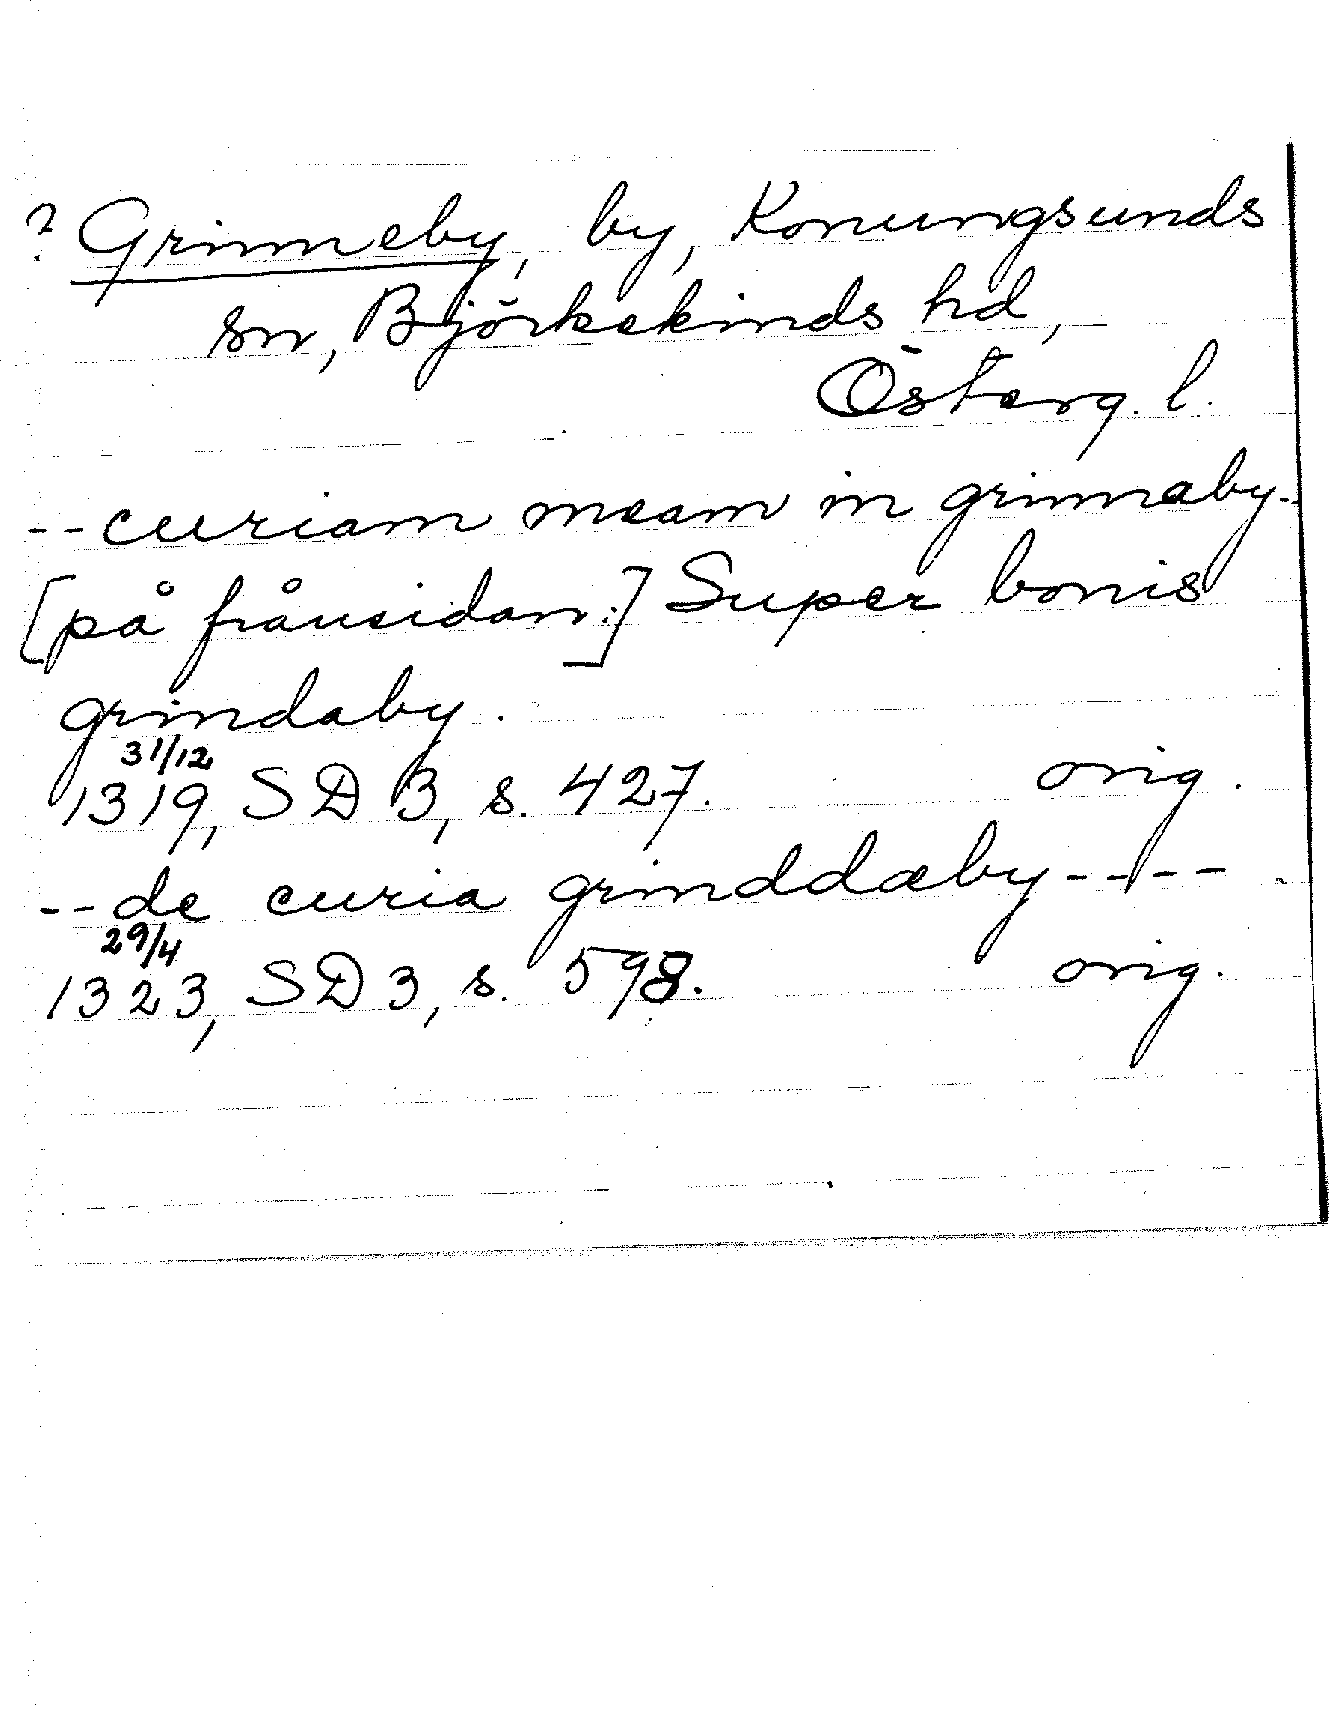 ? Grinneby, by, Konungsunds
sn, Björkekinds hd,
Österg. l.
-- curiam meam in grinnaby -
[på frånsidan:] Super bonis
grindaby.
31/12
1319, SD 3, s. 427. orig.
-- de curia grinddæby ----
29/4
1323, SD 3, s. 598. orig.